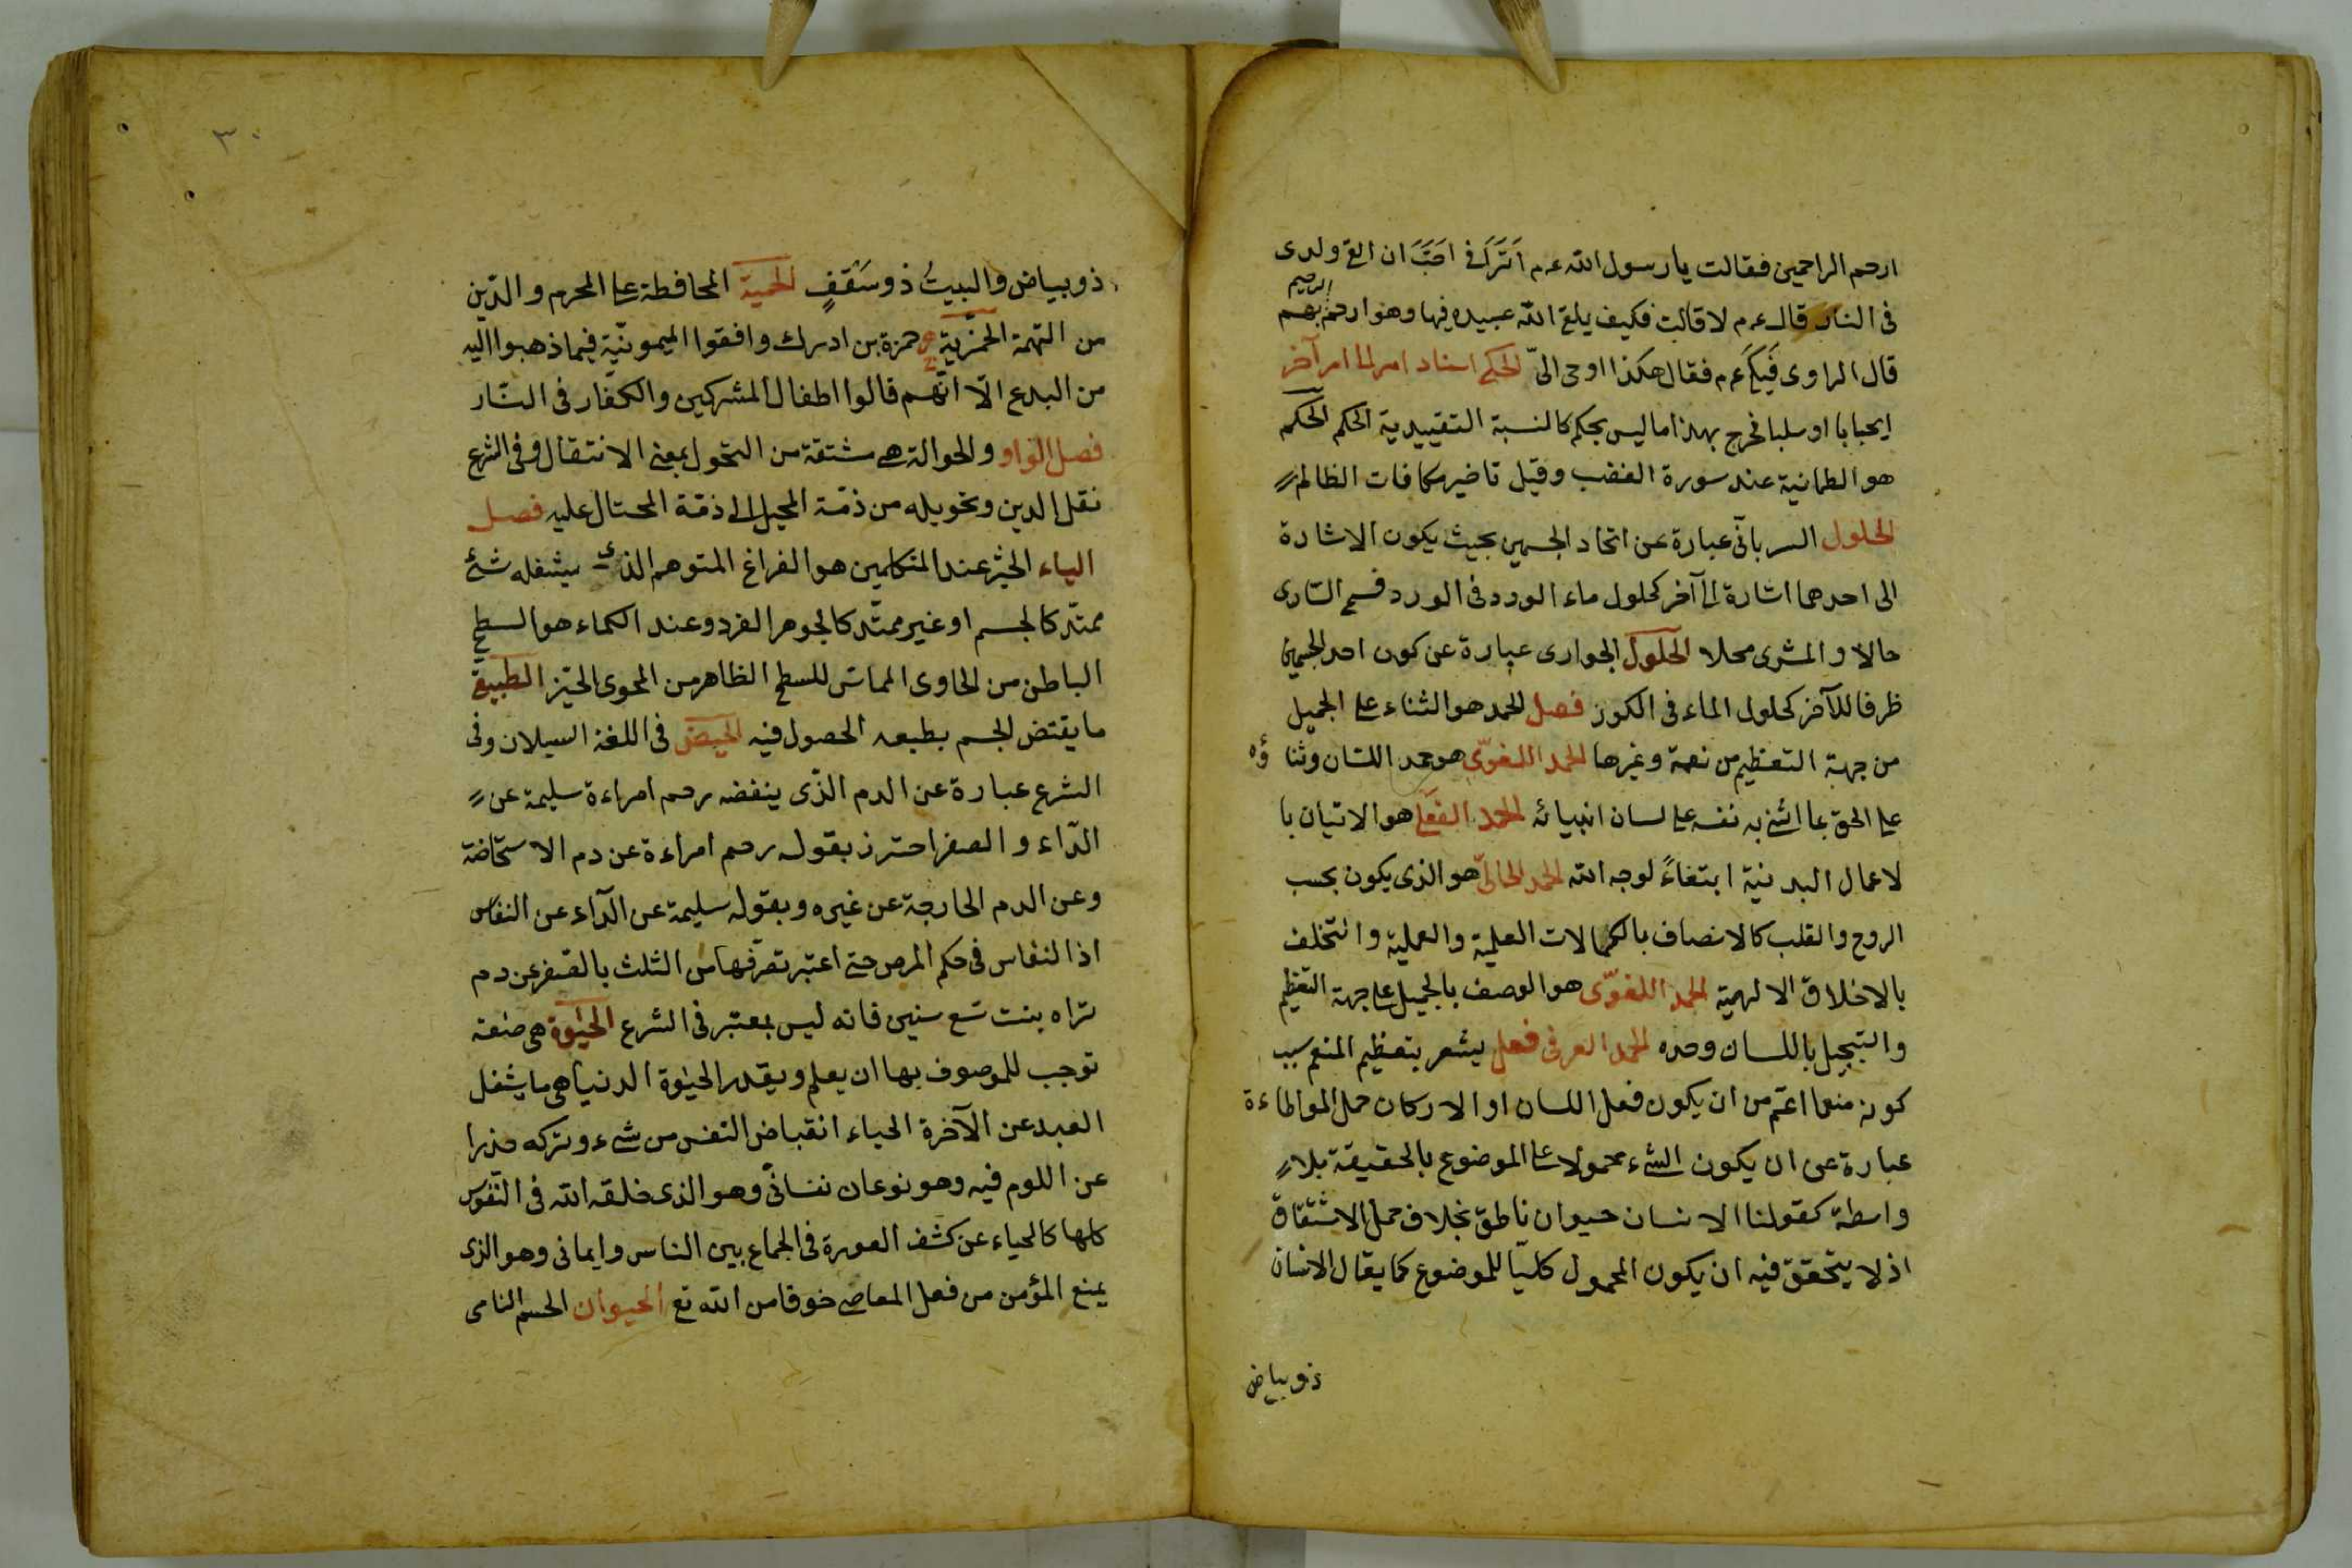 ارحم الراحمين فقالت يا رسول الله عم اتراني احب ان القى ولدى
فى النار قال عم لا قالت فكيف يلقى الله عبيده فيها وهو ارحم بهم
الرحيم
قال الراوى فبكى عم فقال هكذا اوحى الىّ الحكم اسناد امر الى امر آخر
ايجابا او سلبا فخرج بهذا ما ليس بحكم كالنسبة التقييدية الحكم الحكم
هو الطمانية عند سورة الغضب وقيل تاخير مكافات الظالم
الحلول السريانى عبارة عن اتحاد الجسمين بحيث يكون الاشارة
الى احدهما اشارة الى آخر كحلول ماء الورد فى الورد فسمى السارى
حالا و المسرى محلا الحلول الجوارى عبارة عن كون احد الجسمين
ظرفا للآخر كحلول الماء فى الكوز فصل الحمد هو الثناء على الجميل
من جهة التعظيم من نعمة وغيرها الحمد اللغوى هو حمد اللسان وثناؤه
على الحق بما اثنى به نفسه على لسان انبيائه الحمد الفعلى هو الاتيان با
لاعمال البدنية ابتغاءً لوجه الله الحمد الحالى هو الذى يكون بحسب
الروح والقلب كالاتصاف بالكمالات العلمية والعملية وا لتخلف
بالاخلاق الالهية الحمد اللغوّى هو الوصف بالجميل على جهة التعظيم
والتبجيل باللسان وحده الحمد العرفى فعل يشعر بتعظيم المنعم بسبب
كونه منعما اعم من ان يكون فعل اللسان او الاركان حمل المواطاءة
عبارة عن ان يكون الشىء محمولا على الموضوع بالحقيقة بلا
واسطة كقولنا الانسان حيوان ناطق بخلاف حمل الاشتقاق
اذ لا يتحقق فيه ان يكون المحمول كليّا للموضوع كما يقال الانسان
ذو بياض
٣٠
ذو بياض والبيتُ ذو سَقفٍ الحمية المحافظة على المحرم و الدّين
من التهمة الحمزية حمزة بن ادرك وافقوا الميمونيّة فيما ذهبوا اليه
من البدع الّا انّهم قالوا اطفال المشركين والكفار فى النّار
فصل الواو والحوالة هى مشتقة من التحول بمعنى الانتقال وفى الشرع
نقل الدين وتحويله من ذمّة المحيل الى ذمّة المحتال عليه فصل
الياء الحيّز عند المتكلمين هو الفراغ المتوهم الذى يشغله شئ
ممتدّ كالجسم او غير ممتّد كالجوهر الفرد وعند الكماء هو السطح
الباطن من الحاوى المماسّ للسطح الظاهر من المحوى الحيّز الطبيعىّ
ما يقتضى الجسم بطبعه الحصول فيه الحيض فى اللغة السيلان وفى
الشرع عبارة عن الدم الّذى ينفضه رحم امراءة سليمة عن
الدّاء و الصغر احترز بقوله رحم امراءة عن دم الاستحاضة
وعن الدم الخارجة عن غيره وبقوله سليمة عن الدّاء عن النفاس
اذا النفاس فى حكم المرض حتى اعتبر تصرّفها من الثلث بالصّغر عن دم
تراه بنت تسع سنين فانه ليس بمعتبر فى الشرع الحيٰوة هى صفة
توجب للموصوف بها ان يعلم ويقدر الحيٰوة الدنيا هى ما يشغل
العبد عن الآخرة الحياء انقباض النّفس من شىء وتركه حذرا
عن اللوم فيه وهو نوعان نفسانىّ وهو الذى خلقه الله فى النّفوس
كلها كالحياء عن كشف العورة فى الجماع بين الناس وايمانى وهو الذى
يمنع المؤمن من فعل المعاصى خوفا من الله تع الحيوان الجسم النامى